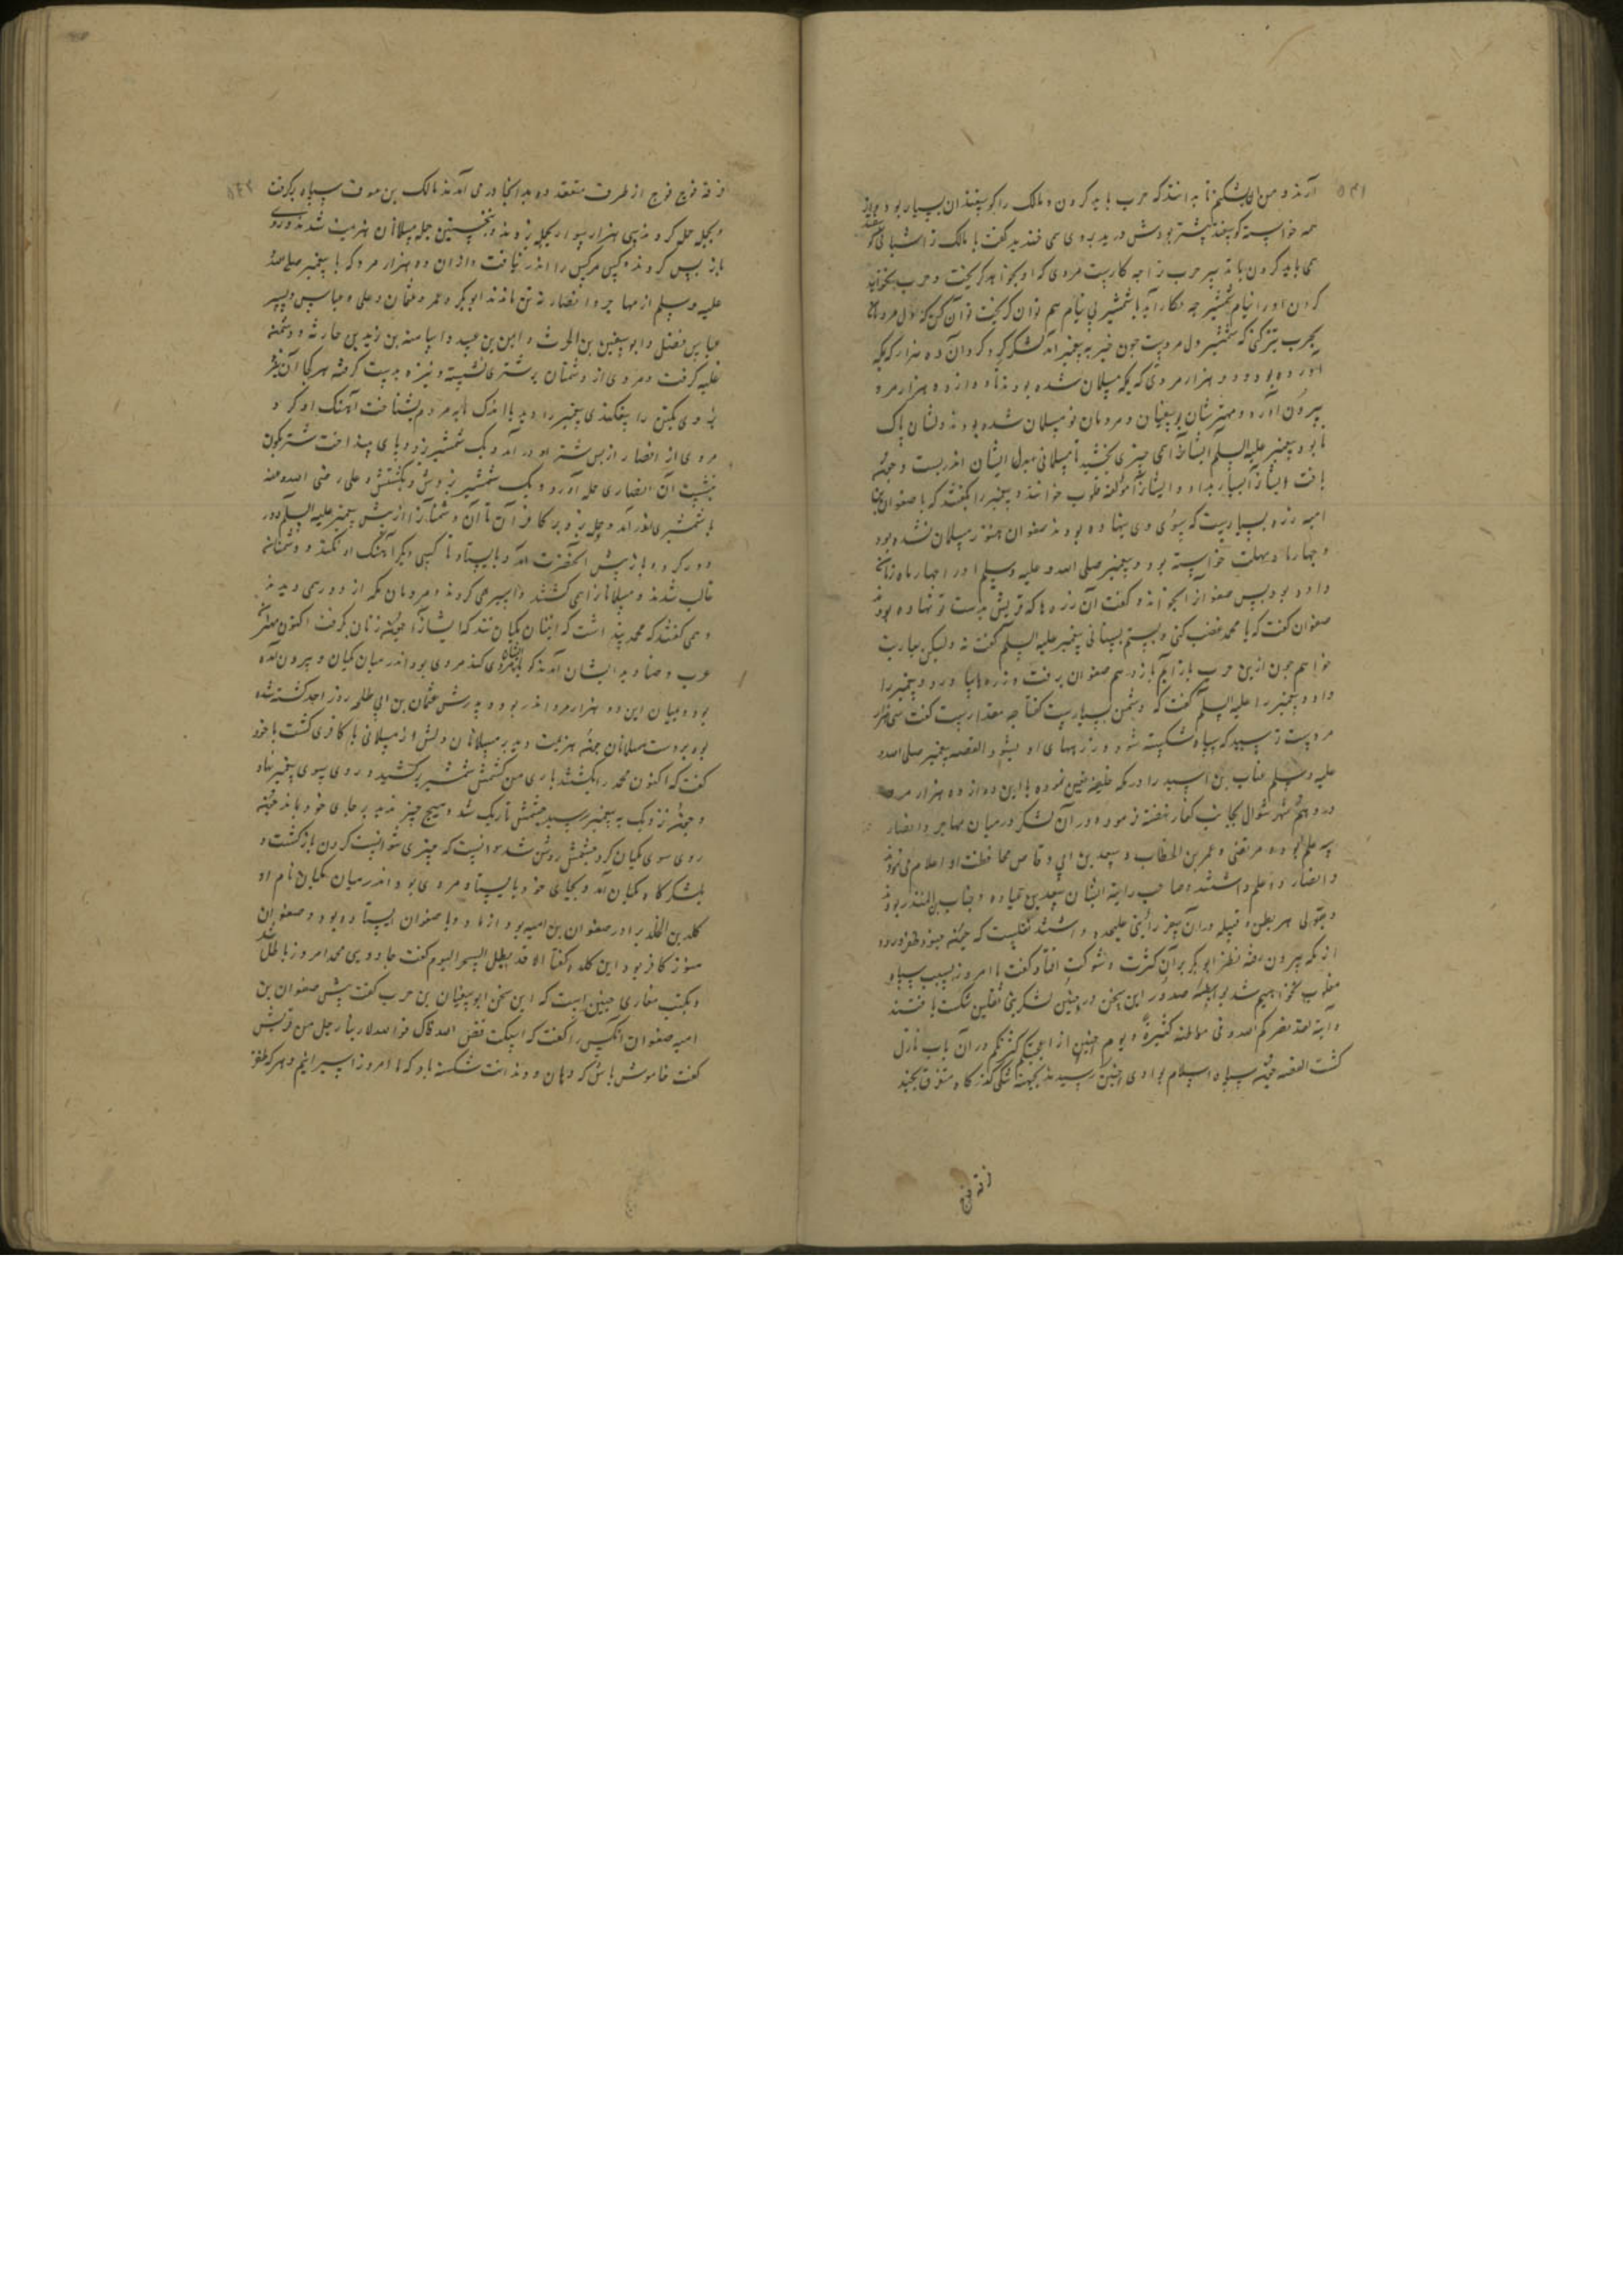 ۵۴۱
آرند و من
همه خواسته گوسفند
همی باید کردن با تدبیر حرب ترا چه کارست مردی که او بخواهد گریخت و حرب نخواهد
کردن او را نیام شمشیر چه بکار آید با شمشیر بی نیام هم توان گریخت تو آن کن که دل مردمان
بحرب تیز کنی که شمشیر دل مردست چون خبر به پیغمبر آمد لشکر گرد کرد و آن ده هزار که بمکه
آورده بود و دو هزار مردی که بمکه مسلمان شده بودند با دوازده هزار مرد
بیرون آمد و مهترشان بوسفیان و مردمان نو مسلمان شده بودند و دلشان پاک
نا بود پیغمبر علیه السلم ایشانرا همی چیزی بخشید تا مسلمانی بدل ایشان اندر بست و
یافت ایشانرا بسیار بداد و ایشانرا مولفه قلوب خوانند و پیغمبر را گفتند که با صفوان بن
امیه زره بسیارست که بسوی وی بنهاده بودند صفوان هنوز مسلمان نشده بود
و چهار ماه مهلت خواسته بود و پیغمبر صلی الله علیه وسلم او را چهار ماه زمان
داده بود پس صفوانرا بخواند و گفت آن زره ها که قریش بدست تو نهاده بودند
صفوان گفت که یا محمد غضب کنی و بستم بستانی پیغمبر علیه السلم گفت نه ولیکن بعاریت
خواهم چون ازین حرب باز آیم باز دهم صفوان برفت و زره ها بیاورد و پیغمبر را
داد و پیغمبر را علیه السلم گفت که دشمن بسیارست گفتا چه مقدارست گفت سی هزار
مردست ترسید که سپاه شکسته شود و زرهای او بشود القصه پیغمبر صلی الله
علیه وسلم عتاب بن اسید را در مکه خلیفه تعین نموده با این دوازده هزار مرد
در دهم شهر شوال بجانب کفار نهضت فرموده و در آن لشکر در میان مهاجر و انصار
سه علم بود مرتضی و عمر بن الخطاب و سعد بن ابی وقاص محافظت او اعلام می نمودند
و انصار دو علم داشتند صاحب رایة ایشان سعد بن عباده و حباب بن المنذر بودند
و متولی هر بطن و قبیله در آن سفر رایتی علیحده داشتند نقلست که چون جنود ظفر ورود
از مکه بیرون رفته نظر ابو بکر بر آن کثرت و شوکت افتاد گفت ما امروز بسبب سپاه
مغلوب نخواهیم شد بواسطه صدور این سخن در حنین لشکر نبی ثقلین شکست یافتند
و آیة لقد نصرکم الله فی مواطن کثیرة و یوم حنین اذ اعجبتکم کثرتکم در آن باب نازل
گشت القصه چون سپاه اسلام بوادی حنین رسیدند بجهة تنگی گذرگاه متفرق بجند
فرقه فوج
۵۴۲
فرقه فوج فوج از طرف متعدده بدانجا در می آمدند مالک بن عوف سپاه برگرفت
و بجمله حمل کردند سی هزار سوار بجمله بزدند و نخستین جمله مسلمانان هزیمت شدند و روی
باز پس کردند و کس مر کس را اندر نیافت و از آن ده هزار مرد که با پیغمبر صلی الله
علیه وسلم از مهاجر و انصار نه تن ماندند ابو بکر و عمر و عثمان و علی و عباس و پسر
عباس فضل و ابو سفین بن الحرث و ایمن بن عبید و اسامه بن زید بن حارثه و دشمنه
غلبه گرفت و مردی از دشمنان بر شتری نشسته و نیزه بدست گرفته بهر کجا آن نیزه
بزدی یکتن را بیفکندی پیغمبر را دید با اندک مایه مردم بشناخت آهنگ او کرد
مردی از انصار از پس شتر او در آمد و یک شمشیر زد و پای بینداخت شتر بکون
بنشست آن انصاری حمله آورد و یک شمشیر بزدش و بکشتش و علی رضی الله عنه
با شمشیری فراز آمد و حمله بزد بر کافران تا آن دشمنانرا از پیش پیغمبر علیه السلم دور
دور کرد و باز پیش آنحضرت آمد و بایستاد تا کسی دیگر آهنگ او نکند و دشمنان
غالب شدند و مسلمانانرا همی کشتند و اسیر می کردند و مردمان مکه از دور همی دیدند
و همی گفتند که محمد پنداشت که اینان مکیان تند که ایشانرا چون زنان گرفت اکنون
عرب و صنادید ایشان آمدند گو باینان مردی کند مردی بود اندر میان مکیان و بیرون آمده
بود و میان این دو هزار مرد اندر بود و پدرش عثمان بن ابی طلحه روز احد کشته شده
بود بر دست مسلمانان چون هزیمت دید بر مسلمانان دلش از مسلمانی با کافری گشت با خود
گفت که اکنون محمد را بکشتند باری من کشمش شمشیر برکشید و روی سوی پیغمبر نهاد
و چون نزدیک به پیغمبر رسید چشمش تاریک شد و هیچ چیز ندید بر جای خود بماند چون
روی سوی مکیان کرد چشمش روشن شد دانست که چیزی نتوانست کردن باز گشت و
بلشکرگاه مکیان آمد و بجای خود بایستاد و مردی بود اندر میان مکیان نام او
کلده بن الحنبل برادر صفوان بن امیه بود از مادر و با صفوان ایستاده بود و صفوان
هنوز کافر بود این کلده گفتا الا قد بطل السحر الیوم گفت جادویی محمد امروز باطل شد
و بکتب مغازی چنین است که این سخن ابو سفیان بن حرب گفت پیش صفوان بن
امیه صفوان آنکس را گفت که اسکت فض الله فاک فوالله لا ربنا رجل من قریش
گفت خاموش باش که دهان و دندانت شکسته باد که ما امروز اسیرانیم و هر که ظفر